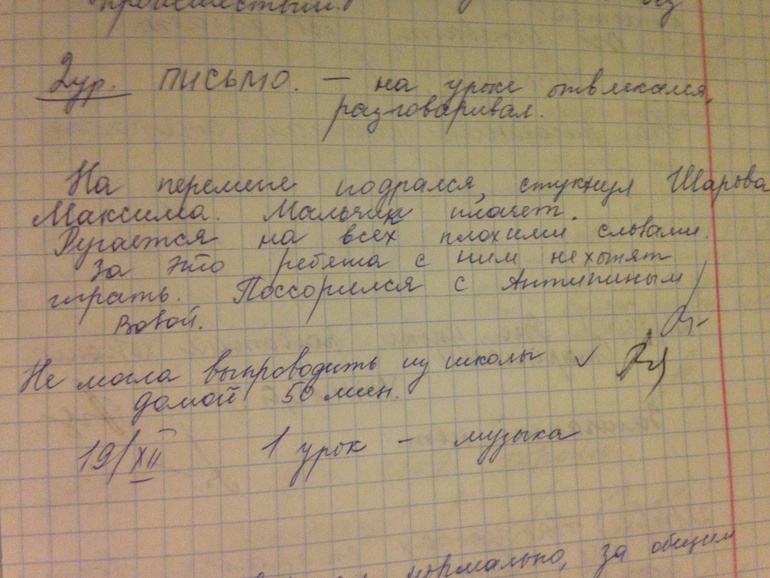 происшествий.
2 ур. ПИСЬМО. — на уроке отвлекался,
разговаривал.
На перемене подрался, стукнул Шарова
Максима. Мальчик плачет.
Ругается на всех плохими словами.
За это ребята с ним не хотят
играть. Поссорился с Антипиным
Вовой.
Не могла выпроводить из школы ✓
домой 50 мин.
19/XII 1 урок – музыка
нормально, за общим